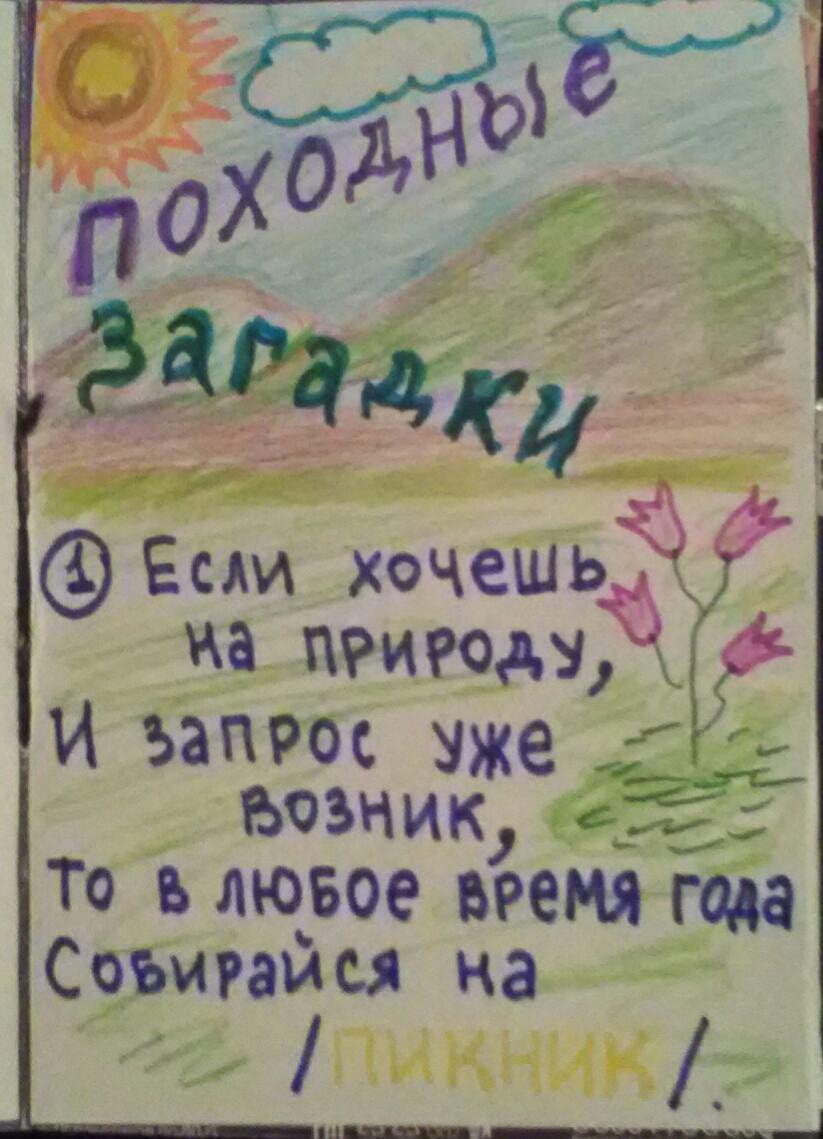 ПОХОДНЫЕ
ЗАГАДКИ
1 Если хочешь
на природу,
И запрос уже
возник,
То в любое время года
Собирайся на
/ПИКНИК/.